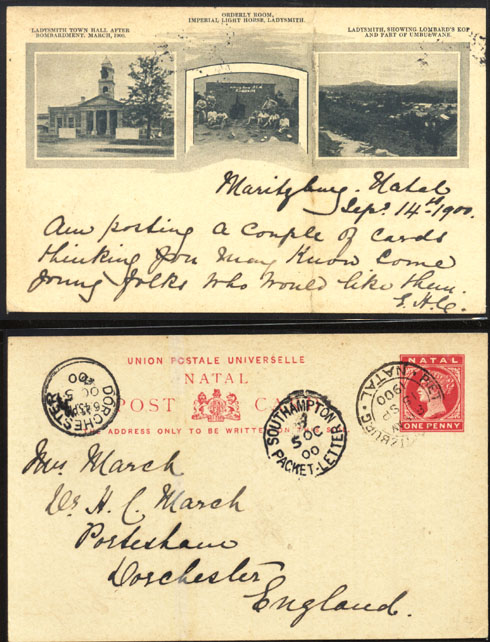 ORDERLY ROOM,
IMPERIAL LIGHT HORSE, LADYSMITH.
LADYSMITH TOWN HALL AFTER
BOMBARDMENT, MARCH, 1900.
LADYSMITH, SHOWING LOMBARD'S KOP
AND PART OF UMBULWANE.
Maritzburg. Natal
Sep. 14th 1900.
Am posting a couple of cards
thinking you may know some
young folks who would like them.
UNION POSTALE UNIVERSELLE
NATAL
POST CARD
THE ADDRESS ONLY TO BE WRITTEN ON THIS SIDE
NATAL
ONE PENNY
DORCHESTER
OC 5
00
SOUTHAMPTON
5 OC
00
PACKET-LETTER
NATAL
SP
1900
Mrs March
Dr H. C. March
Portesham
Dorchester
England.